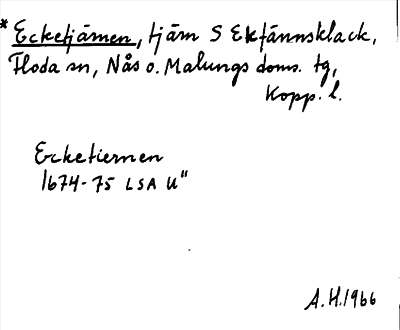 * Ecketjärnen, tjärn S Ektännsklack,
Floda sn, Nås o. Malungs doms. tg,
Kopp. l.
Ecketiernen
1674-75 LSA U"
A.H. 1966